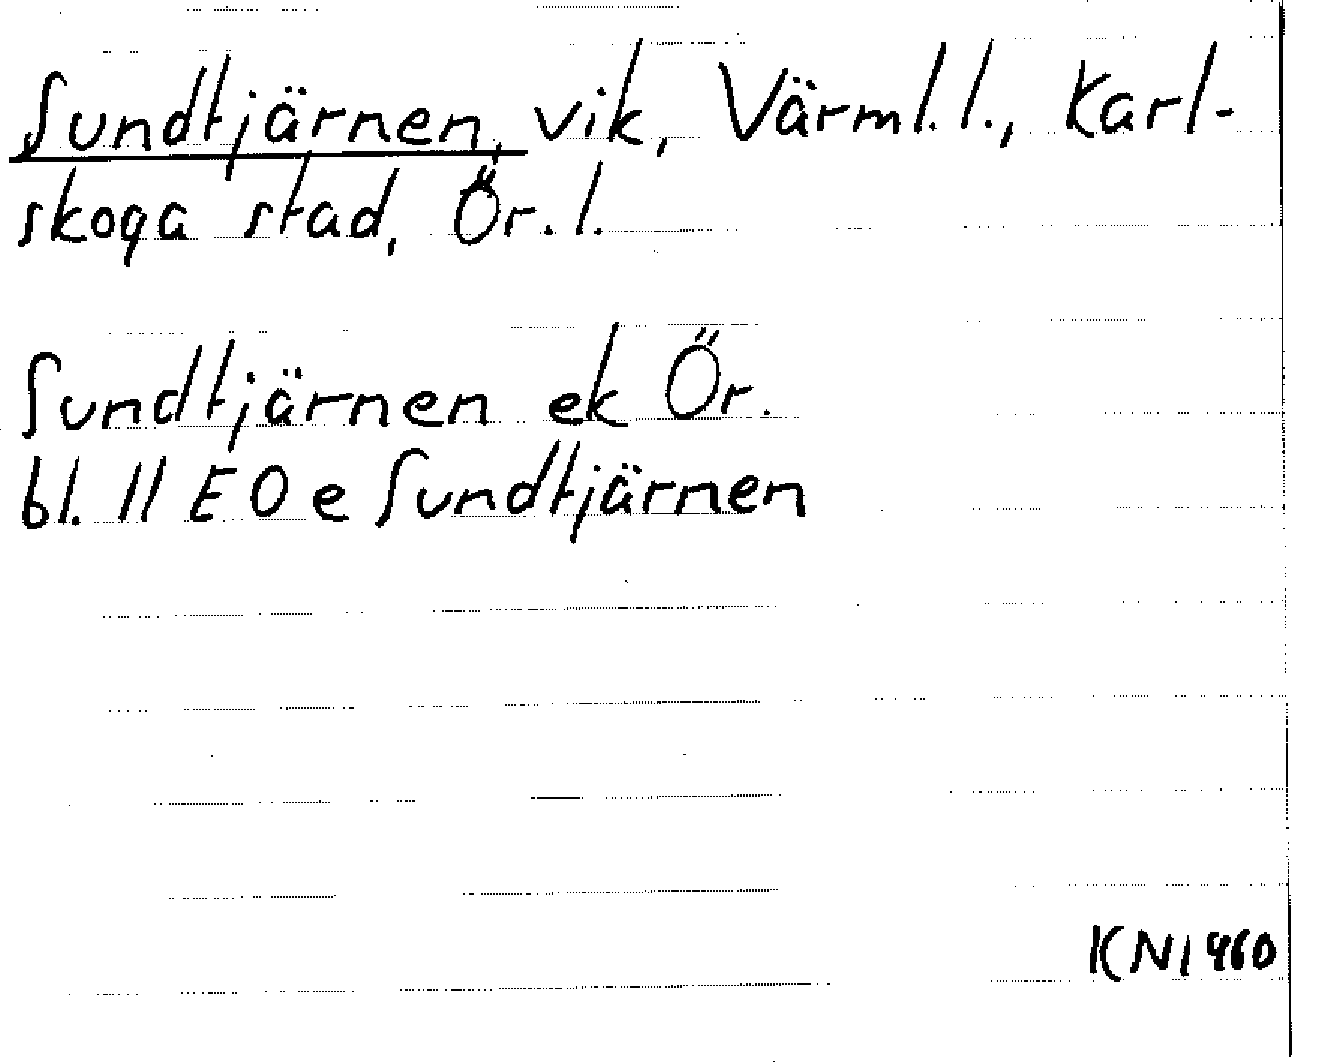 Sundtjärnen, vik, Värml. l., Karl-
skoga stad, Ör. l.
Sundtjärnen ek Ör.
bl. 11 E O e Sundtjärnen
KN1960